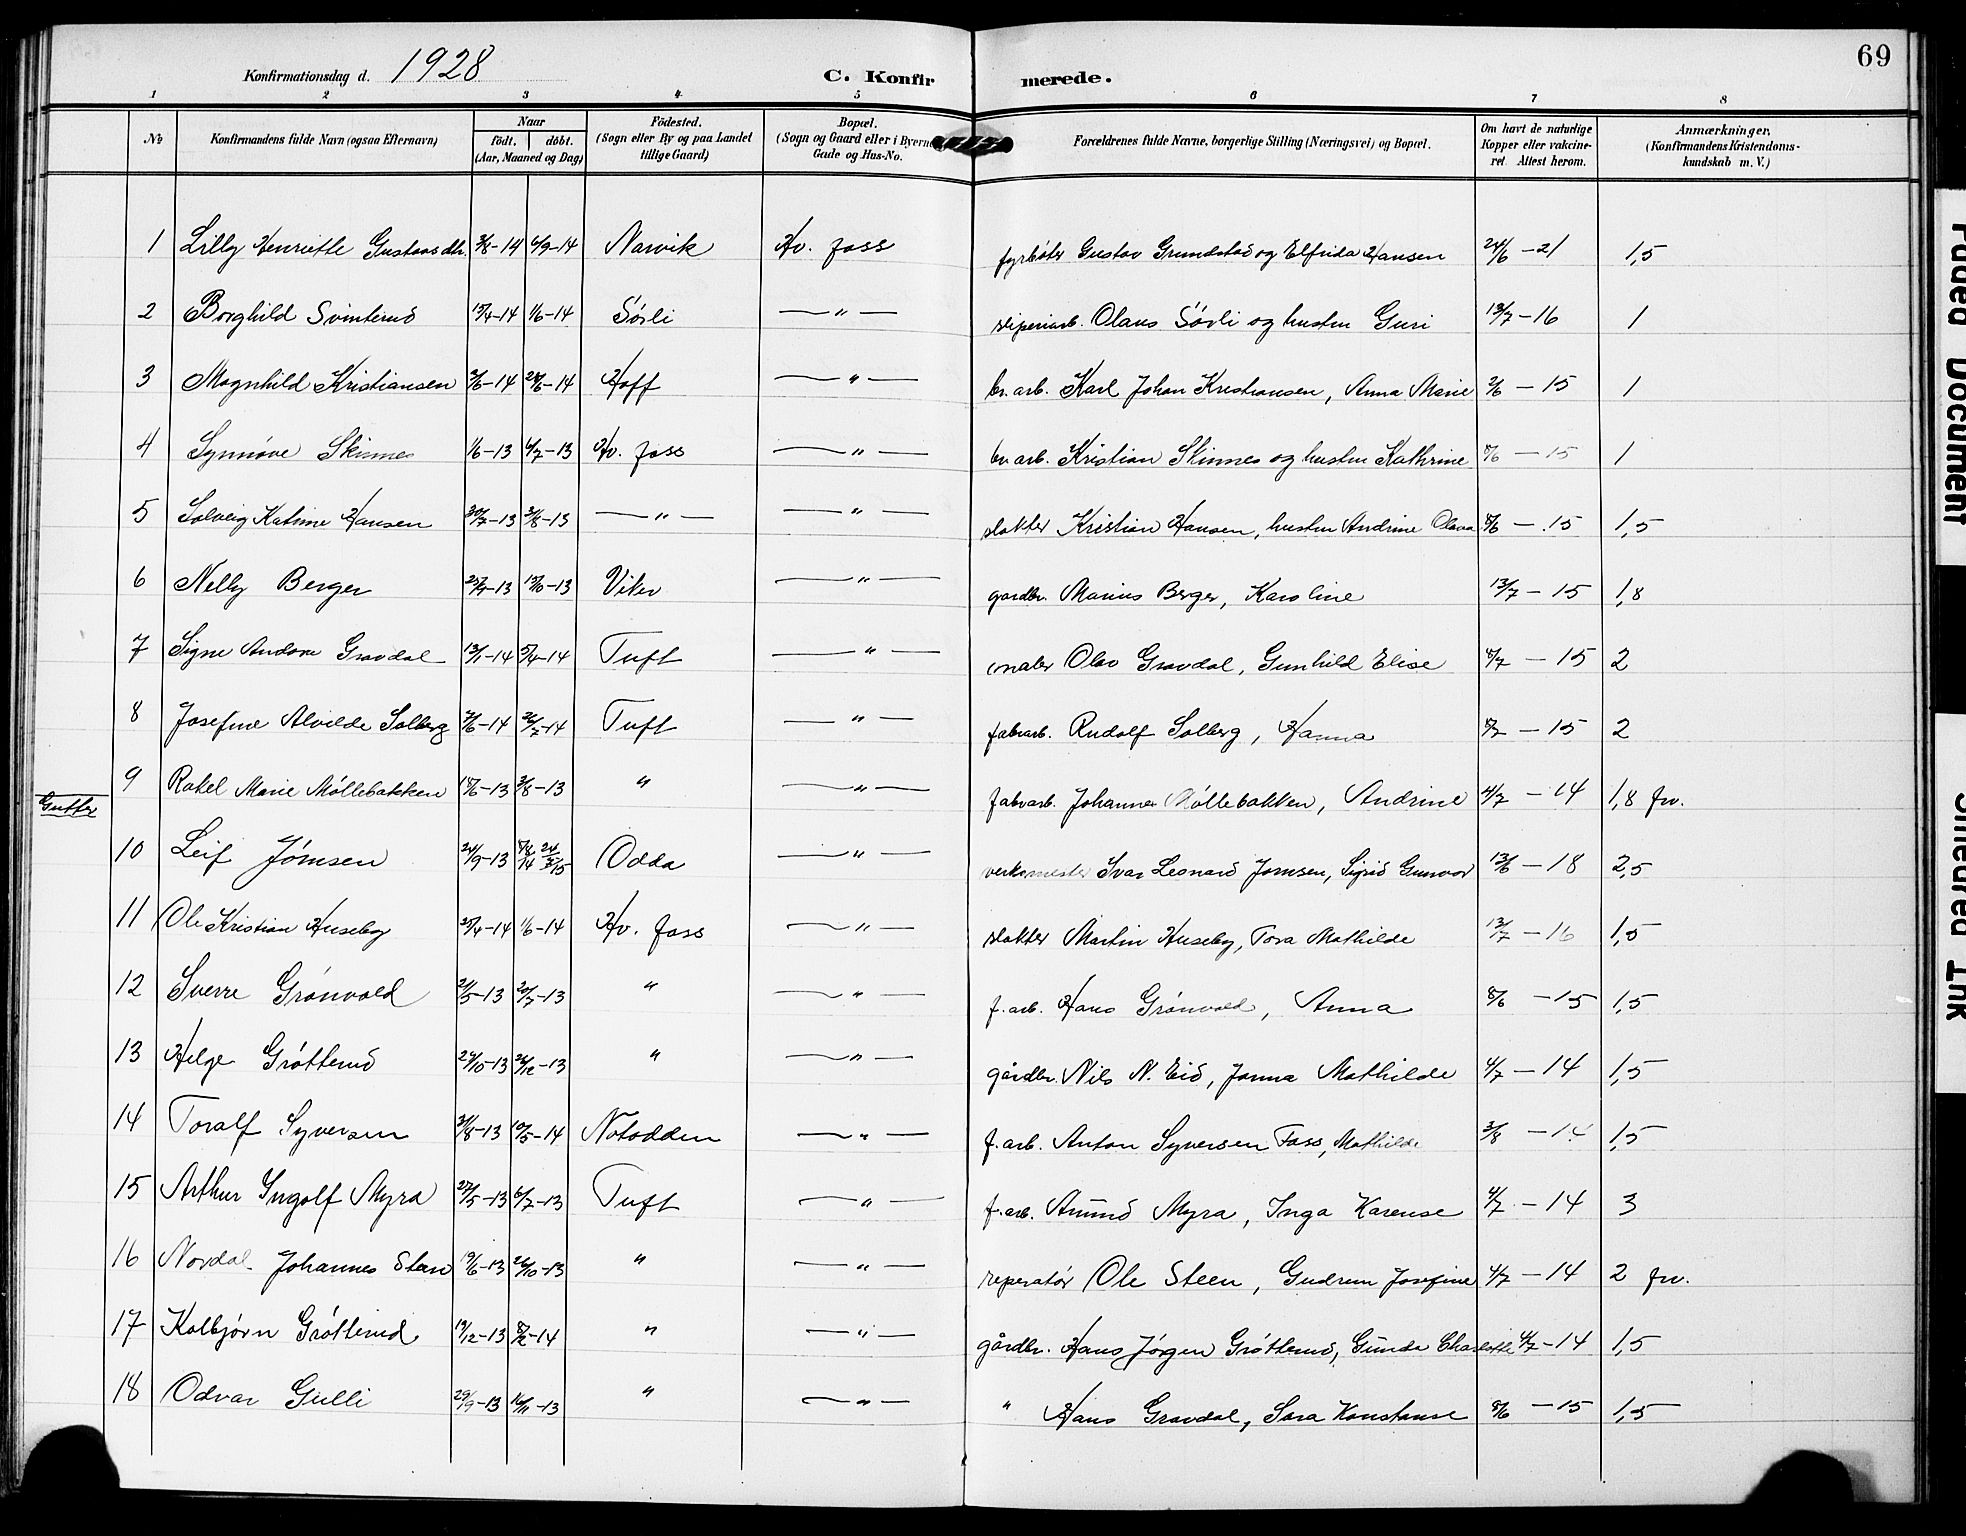 69
Konfirmationsdag d. 1928 C. Konfirmerede.
1 2 3 4 5 6 7 8
№ Konfirmandens fulde Navn (ogsaa Efternavn) Naar født. døbt. (Aar, Maaned og Dag) Fødested. (Sogn eller By og paa Landet tillige Gaard) Bopæl. (Sogn og Gaard eller i Byerne Gade og Hus-No. Forældrenes fulde Navne, borgerlige Stilling (Næringsvei) og Bopæl. Om havt de naturlige Kopper eller vakcineret. Attest herom. Anmærkninger, (Konfirmandens Kristendomskundskab m. V.)
1 Lilly Henriette Gustavsdtr. 3/8-14 6/9-14 Narvik Hv. foss fyrbøter Gustav Grundstad og Elfrida Hansen 24/6 - 21 1,5
2 Borghild Svinterud 15/4-14 1/6-14 Sørli — " — sliperiarb. Olaus Sørli og hustru Guri 13/7 - 16 1
3 Magnhild Kristiansen 2/6-14 28/6-14 Hoff — " — br. arb. Karl Johan Kristiansen, Anna Marie 2/6 - 15 1
4 Synnøve Skinnes 1/6-13 6/7-13 Hv. foss — " — br. arb. Kristian Skinnes og hustru Kathrine 8/6 - 15 1
5 Solveig Katrine Hansen 30/7-13 31/8-13 — " — — " — slakter Kristian Hansen, hustru Andrine Olava 8/6 - 15 1,5
6 Nelly Berger 13 -13 Viker — " — gardbr. Marius Berger, Karoline 13/7 - 15 1,8
7 Signe Andora Gravdal 13/1-14 5/4-14 Tuft — " — maler Olav Gravdal, Gunhild Elise 8/7 - 15 2
8 Josefine Alvilde Solberg -14 26/7-14 Tuft — " — fabrarb. Rudolf Solberg, Hanna 8/7 - 15 2
9 Rakel Marie Møllebakken 18/6-13 3/8-13 " — " — fabrarb. Johannes Møllebakken, Andrine 4/7 - 14 1,8 frv.
Gutter
10 Leif Jømsen 24/9-13 Odda — " — verksmester Ivar Leonard Jomsen, Sigrid Gunvor 13/6 - 18 2,5
11 Ole Kristian Huseby 25/4-14 1/6-14 Hv. foss — " — slakter Martin Huseby, Tora Mathilde 13/7 - 16 1,5
12 Sverre Grønvold 24/5-13 20/7-13 " — " — f. arb. Hans Grønvold, Anna 8/6 - 15 1,5
13 Helge Grøtterud 24/10-13 26/12-13 " — " — gårdbr. Nils N. Eid, Janna Mathilde 4/7 - 14 1,5
14 Toralf Syversen 31/8-13 10/5-14 Notodden — " — f. arb. Anton Syversen Foss, Mathilde 3/8 - 14 1,5
15 Arthur Ingolf Myra 27/5-13 6/7-13 Tuft — " — f. arb. Amund Myra, Inga Karense 4/7 - 14 3
16 Nordal Johannes Steen 19/6-13 26/10-13 " — " — reperatør Ole Steen, Gudrun Josefine 4/7 - 14 2 frv.
17 Kolbjørn Grøtterud 19/12-13 8/2-14 " — " — gårdbr. Hans Jørgen Grøtterud, Gunda Charlotte 4/7 - 14 1,5
18 Odvar Gulli 29/9-13 16/11-13 " — " — " Hans Gravdal, Sara Konstanse 8/6 - 15 1,5
Faded Document
Smeared Ink